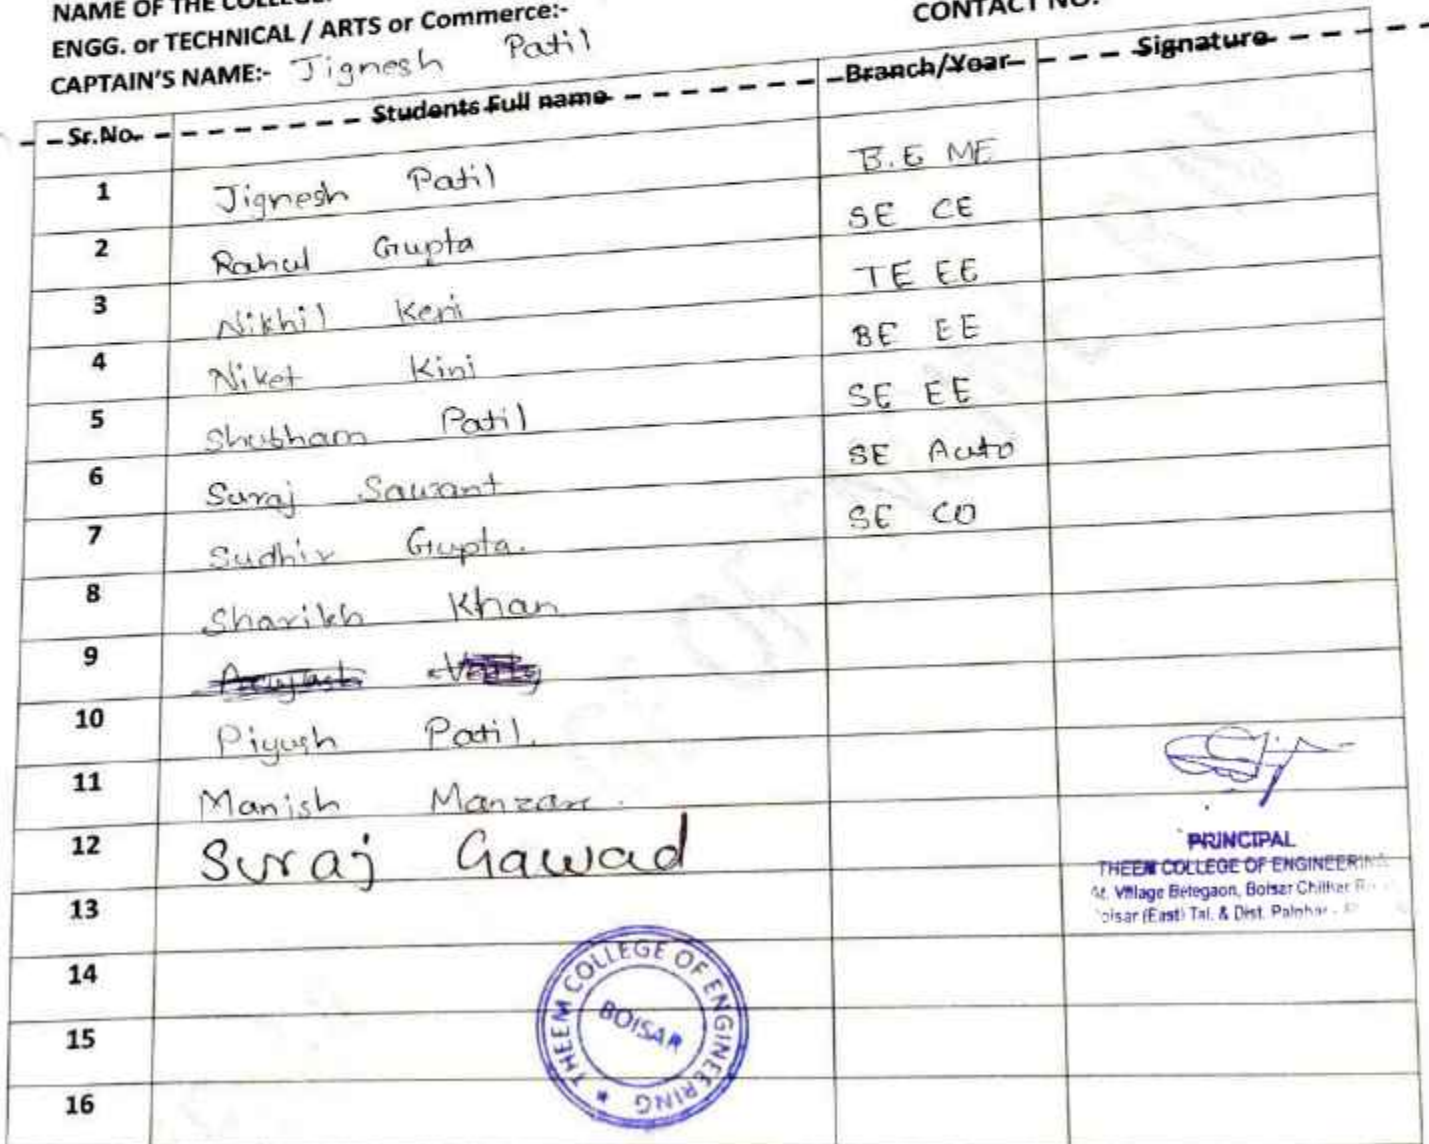 NAME OF THE COLLEGE:
ENGG. or TECHNICAL / ARTS or Commerce:-
CONTACT NO.
CAPTAIN'S NAME:- Jignesh Patil
Sr.No. Students Full name Branch/Year Signature
1 Jignesh Patil B.E ME
2 Rahul Gupta SE CE
3 Nikhil Keni TE EE
4 Niket Kini BE EE
5 Shubham Patil SE EE
6 Suraj Sawant SE Auto
7 Sudhir Gupta. SE CO
8 Sharikh Khan
9
10 Piyush Patil.
11 Manish
12 Suraj Gawad
13
14
15
16
PRINCIPAL
THEEM COLLEGE OF ENGINEERING
At. Village Betegaon, Boisar Chilhar
Boisar (East) Tal. & Dist. Palghar -
THEEM COLLEGE OF ENGINEERING
BOISAR